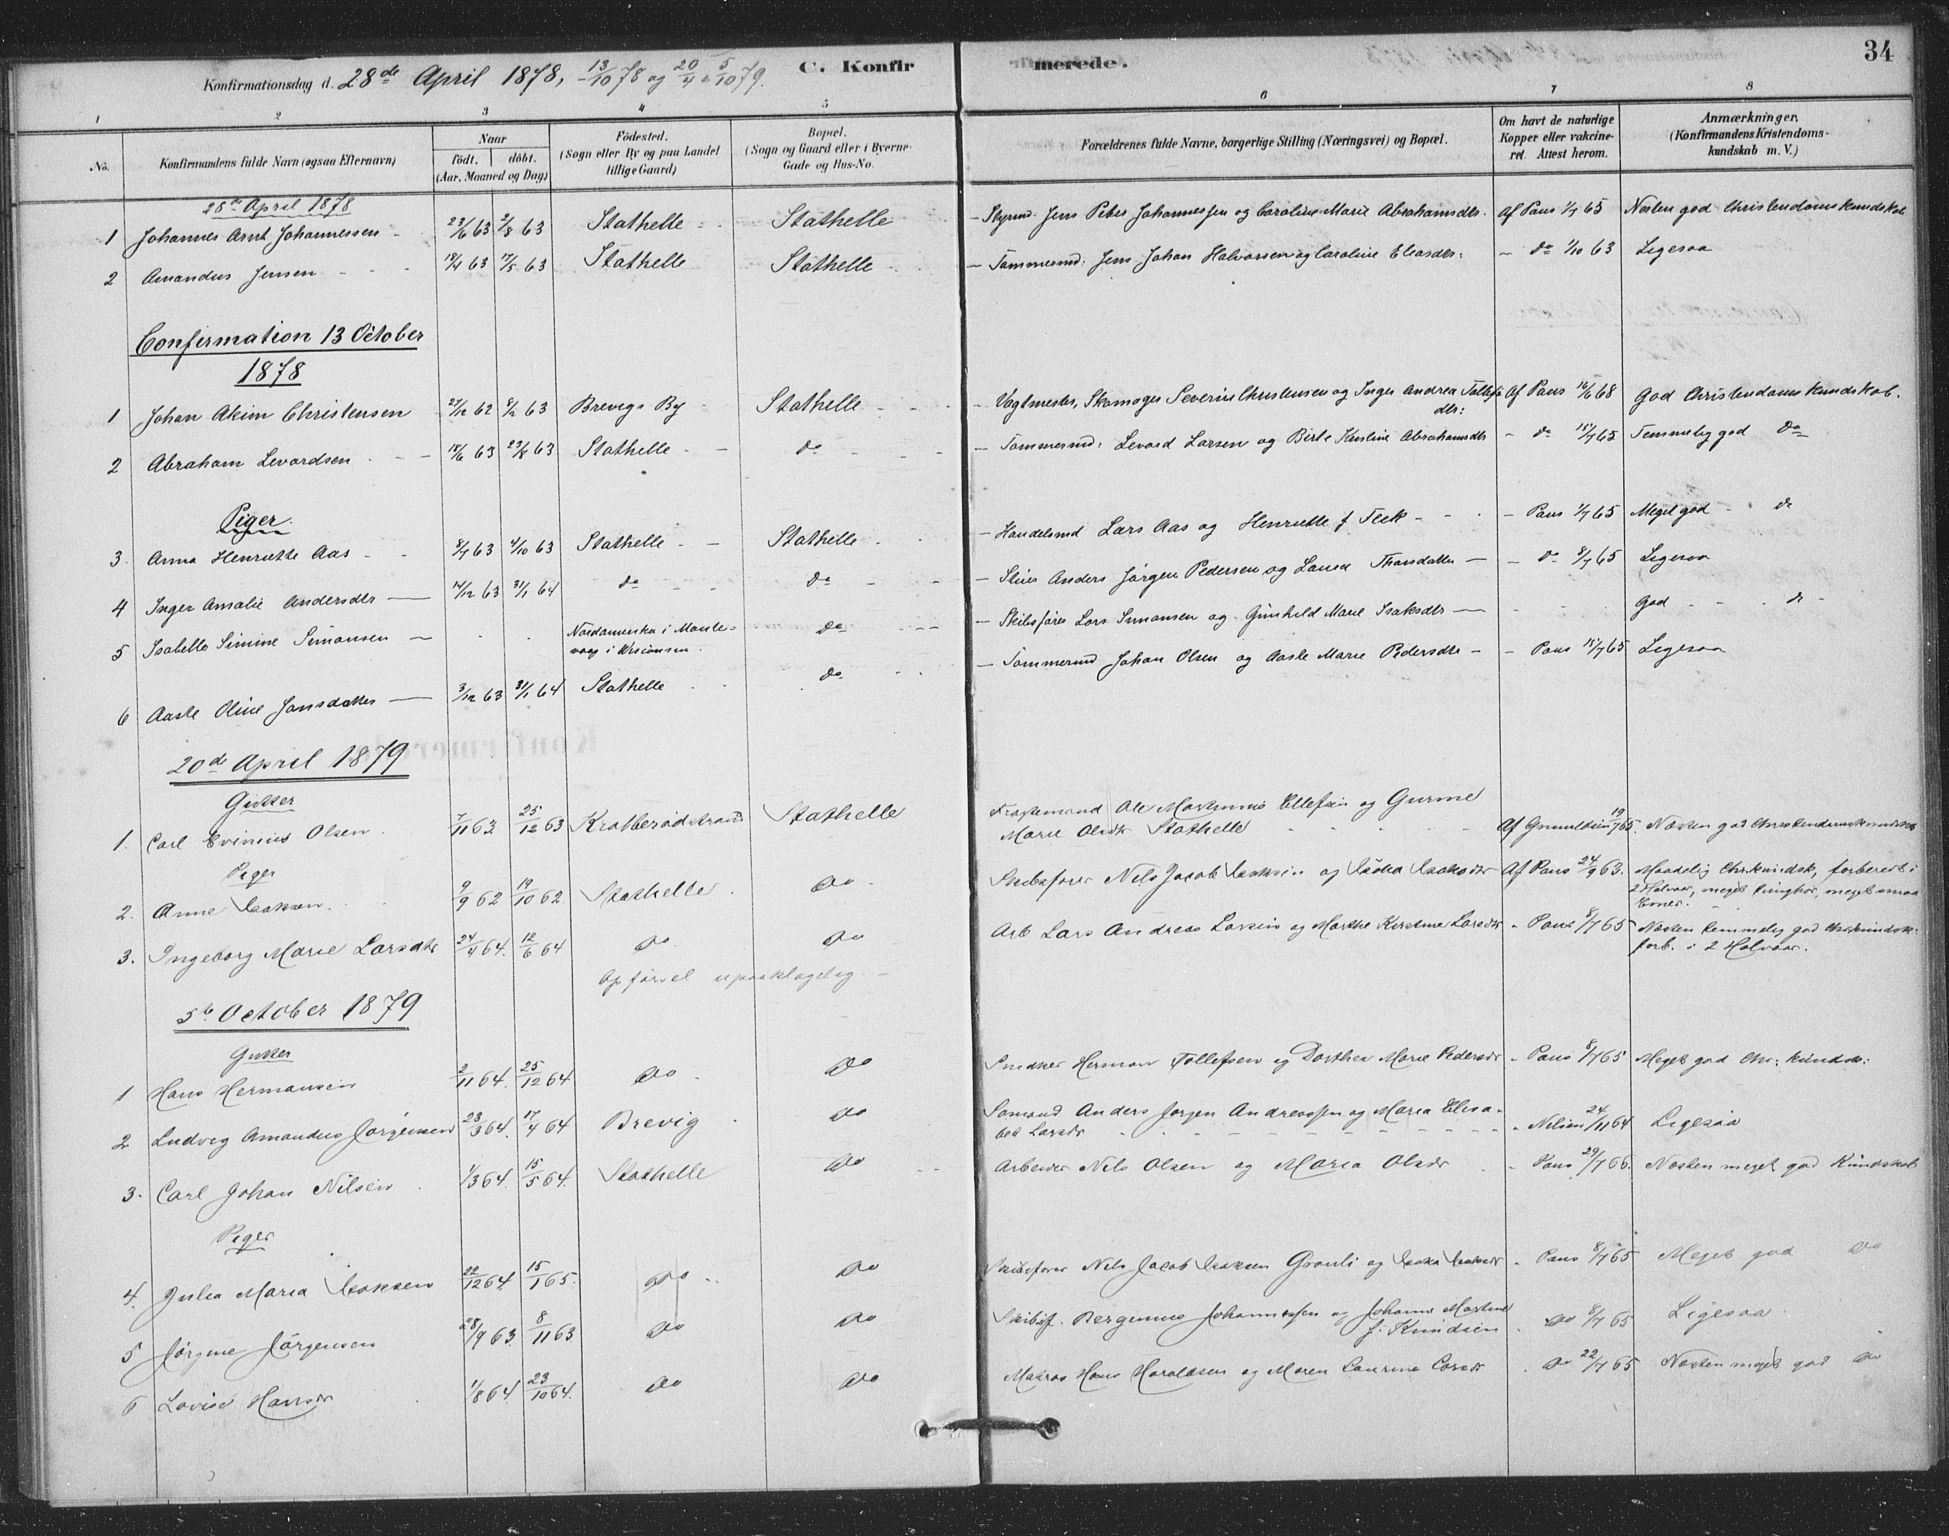 34
Konfirmationsdag d. 28de April 1878, 13/10 78 og 20/4 & 5/10 79.
C. Konfirmerede.
1 2 3 4 5 6 7 8
No.
Konfirmandens fulde Navn (ogsaa Efternavn)
Naar
født. | døbt.
(Aar, Maaned og Dag)
Fødested.
(Sogn eller By og paa Landet
tillige Gaard)
Bopæl.
(Sogn og Gaard eller i Byerne
Gade og Hus-No.
Forældrenes fulde Navne, borgerlige Stilling (Næringsvei) og Bopæl.
Om havt de naturlige
Kopper eller vakcine-
ret. Attest herom.
Anmærkninger,
(Konfirmandens Kristendoms-
kundskab m. V.)
28de April 1878
1 Johannes Arnt Johannessen 23/6 63 2/8 63 Stathelle Stathelle – Styrmd. Jens Peter Johannessen og Caroline Marie Abrahamsdtr. Af Paus 1/7 65 Næsten god Christendomskundskab
2 Amandus Jensen 63 63 Stathelle Stathelle – Tømmermd: Jens Johan Halvorsen og Caroline Eleasdtr: – do 1/10 63 Ligesaa
Confirmation 13 October
1878
1 Johan Akim Christensen 62 63 Brevigs By Stathelle – Vagtmester, Skomager Severin Christensen og Inger Andrea Tollefs Af Paus 16/6 68 God Christendomskundskab.
dtr:
2 Abraham Levordsen 63 63 Stathelle do – Tømmermd: Levord Larsen og Birte Kirstine Abrahamsdtr – do 15/7 65 Temmelig god do
Piger.
3. Anna Henriette Aas 8/7 63 4/10 63 Stathelle Stathelle – Handelsmd Lars Aas og Henriette f. – Paus 1/7 65 Meget god do
4 Inger Amalie Andersdtr 14/12 63 31/1 64 do do – Anders Jørgen Pedersen og – do 8/7 65 Ligesaa
5 Isabelle Simine Simonsen Nordamerika i do – Skibsfører Lars Simonsen og Gunhild Marie Isaksdtr God do
6 Aaste Oline Jansdatter 3/12 63 31/1 64 Stathelle do – Tømmermd Johan Olsen og Aaste Marie Pedersdtr – Paus 15/7 65 Ligesaa
20de April 1879
Gutter
1. Carl Evinius Olsen 7/11 63 25/12 63 Stathelle Ole Martinius Ellefsen og Gurine
Marie Olsdtr Stathelle Af 19/7 65. Næsten god Christendomskundskab
Piger
2. Anne Isaksen. 9/9 62 19/10 62 Stathelle do. Skibsfører Nils Jacob Isaksen og Isaksdtr Af Paus 24/9 63. Maadelig Chr.kundsk, forberedt i
2 Halvaar, meget
Evner.
3. Ingeborg Marie Larsdtr 24/4 64. 12/6 64 do do Arb Lars Andreas Larsen og Marthe Kirstine Larsdtr – Paus 8/7 65 Næsten temmelig god Chr.kundsk:
forb. i 2 Halvaar.
Opførsel upaaklagelig. –
5te October 1879
Gutter
1 Hans Hermansen 2/11 64. 25/12 64 do do Snedker Herman Tollefsen og Dorthea Marie Pedersdtr – Paus 8/7 65 Meget god Chr: kundsk:
2 Ludvig Amandus Jørgensen 23/3 64. 17/4 64 Brevig do Sømand Anders Jørgen Andreassen og Maria Elisa-
bet Larsdr – Nelsien 24/11 64 Ligesaa
3. Carl Johan Nilsen 1/3 64. 15/5 64. Stathelle do Arbeider Nils Olsen og Maria Olsdr – Paus 29/7 66. Næsten meget god Kundskab
Piger
4. Julia Maria Isaksen 22/12 64. 15/1 65. do do Skibsfører Nils Jacob Isaksen og Isaksdr – Paus 8/7 65 Meget god do
5 Jørgine Jørgensen 28/9 63. 8/11 63 do do Skibsf. Johannessen og Johanne Martine
f. Knudsen do 8/7 65 Ligesaa
6 Lovise Hansdr 1/8 64. 23/10 64. do do Matros Hans Haraldsen og Maren Laurine Larsdr do 22/7 65 Næsten meget god do